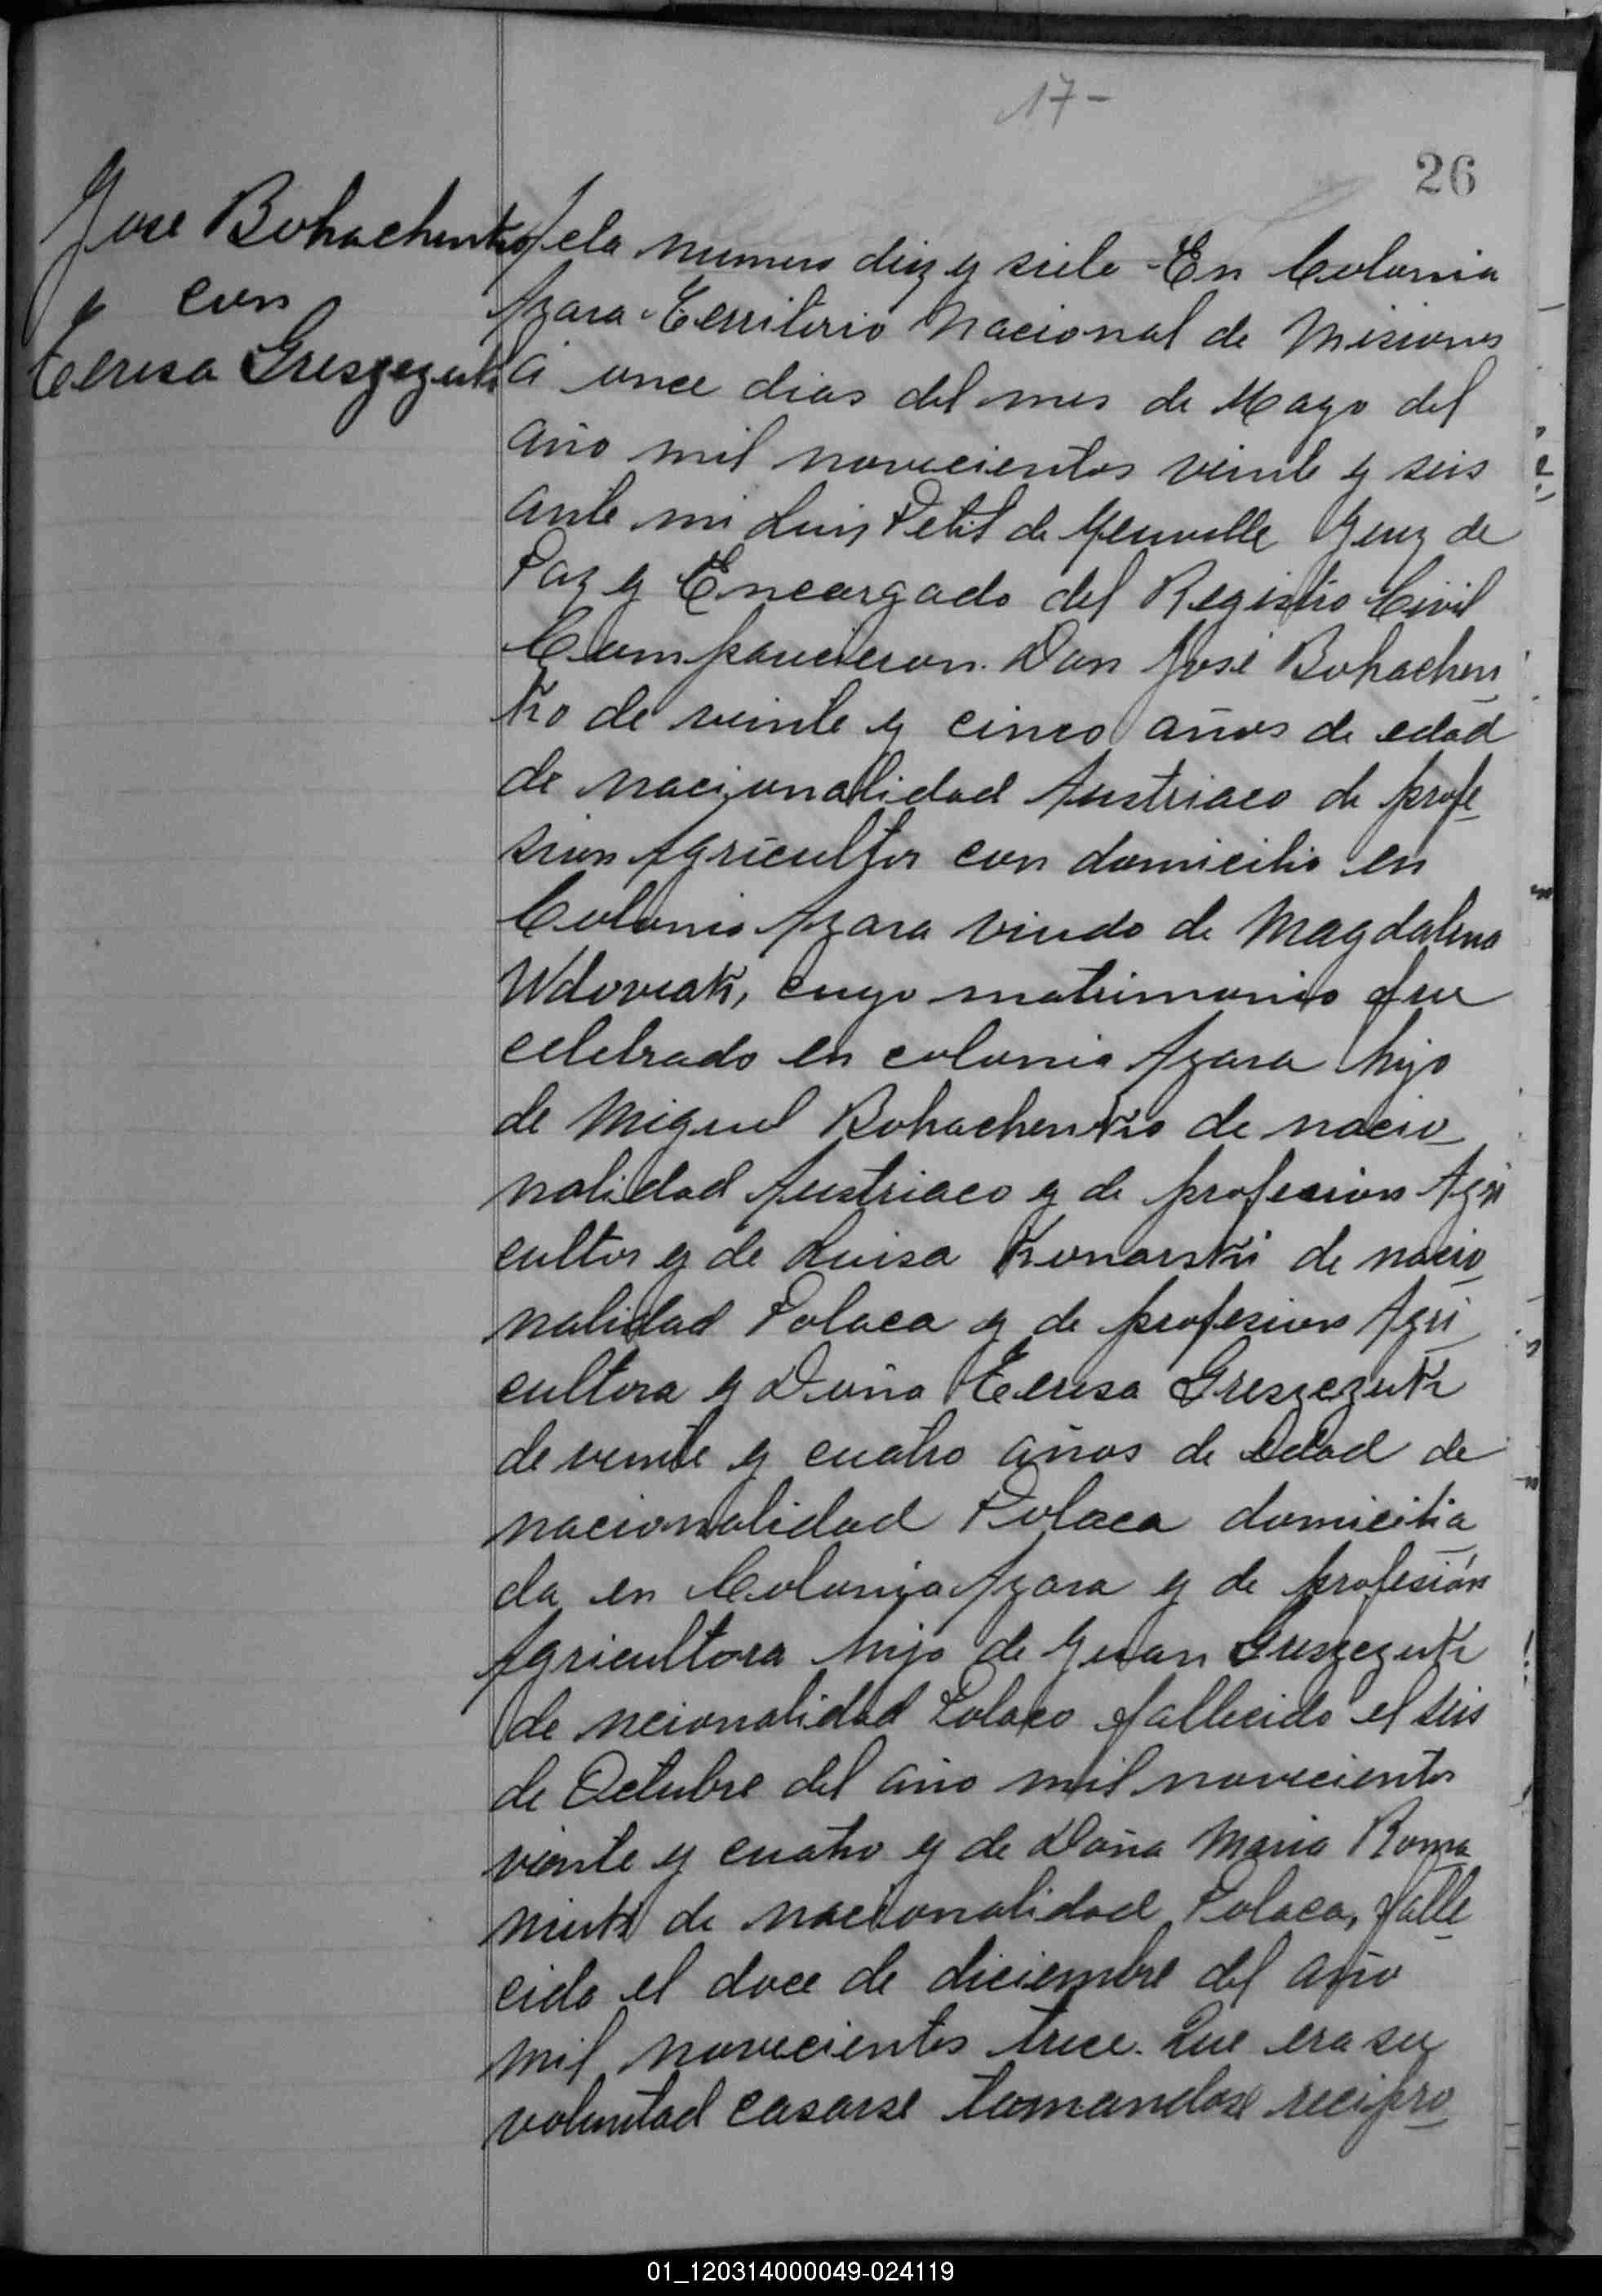 17-
26
Jose Bohachenko
y con
Teresa Greszezuk
Acta numero diez y siete En Colonia
Azara Territorio Nacional de Misiones
á once dias del mes de Mayo del
año mil novecientos veinte y seis
ante mi Luis Petit de Meurville Juez de
Paz y Encargado del Registro Civil
Comparecieron Don José Bohachen
ko de veinte y cinco años de edad
de nacionalidad Austriaco de profe
sion Agricultor con domicilio en
Colonia Azara viudo de Magdalena
Wdoviak, cuyo matrimonio fue
celebrado en colonia Azara hijo
de Miguel Bohachenko de nacio
nalidad Austriaco y de profesion Agri
cultor y de Luisa Konarski de nacio
nalidad Polaca y de profesion Agri
cultora y Doña Teresa Greszezuk
de veinte y cuatro años de edad de
nacionalidad Polaca domicilia
da en Colonia Azara y de profesión
Agricultora hija de Juan Greszezuk
de ncionalidad Polaco fallecido el seis
de Octubre del año mil novecientos
viente y cuatro y de Doña Maria Roma
niuk de nacionalidad Polaca, falle
cida el doce de diciembre del año
mil novecientos trece. Que era su
voluntad casarse tomandose recipro
01_120314000049-024119